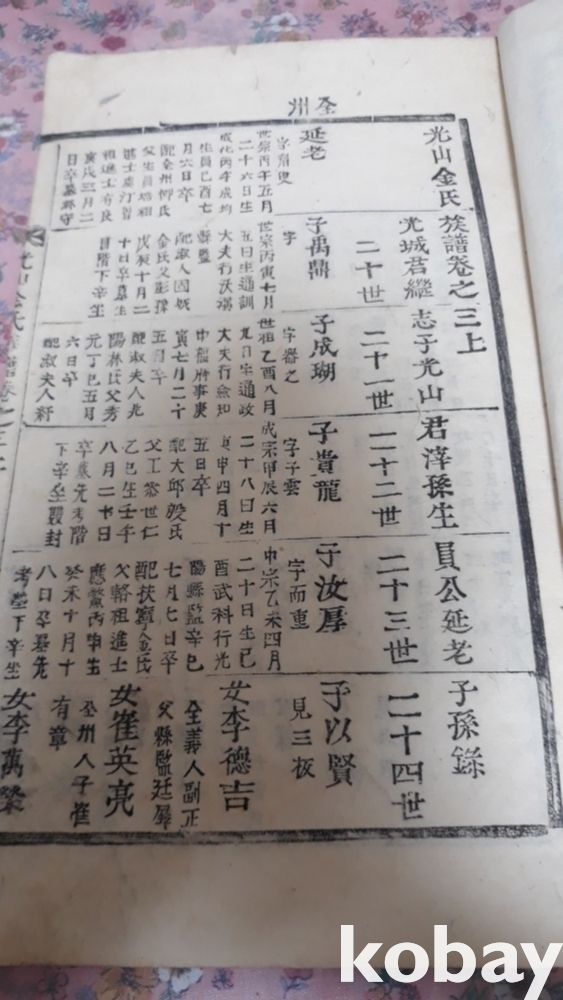 全州
光山金氏族譜卷之三上
光城君繼志子光山君滓孫生員公延老子孫錄
二十世
二十一世
二十二世
二十三世
二十四世
延老
世宗丙午五月
二十六日生
成化丙午成均
生員己酉七
月六日卒
配全州
日卒墓
子禹鼎
字
世宗丙寅七月
五日生通訓
大夫行沃溝
縣監
配淑人
戊辰十月二
十日卒墓
同階下辛坐
子成瑚
字器之
世祖乙酉八月
九日生通政
大夫行僉知
中樞府事庚
寅七月二十
五日卒
配淑夫人
陽林氏父秀
元丁巳五月
六日卒
配淑夫人
子貴龍
字子雲
成宗甲辰六月
二十八日生
庚申四月十
五日卒
配大邱
父工
乙巳生壬午
八月二十日
卒墓先考階
下辛坐
子汝厚
字而重
中宗乙未四月
二十日生己
酉武科行光
陽縣監辛巳
七月七日卒
配扶寧金氏
父輅祖進士
應鰲丙申生
癸未十月十
八日卒墓先
考塋下辛坐
子以賢
見三板
女李德吉
全義人副正
父縣監廷
女崔英亮
全州人子崔
有章
女李萬榮
kobay